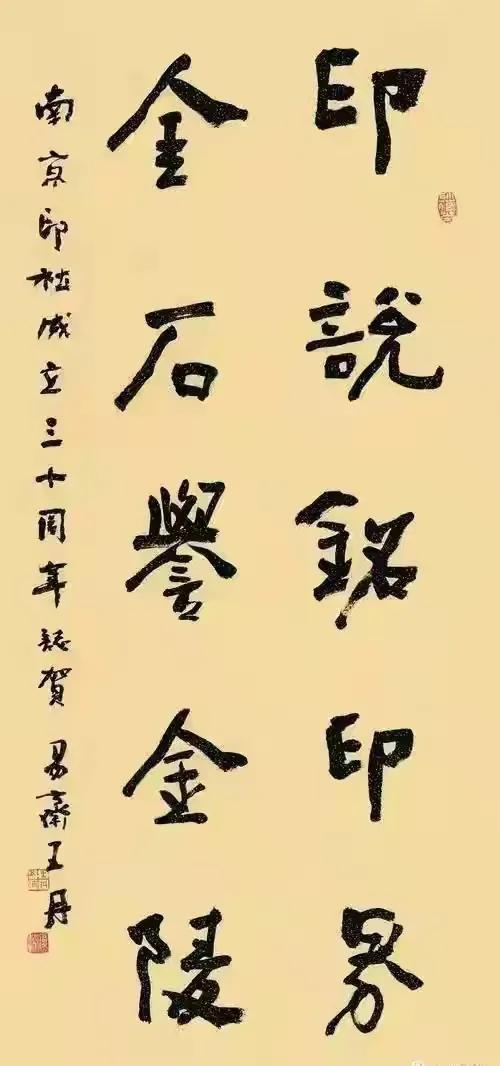 印說銘印界
金石譽金陵
南京印社成立三十周年誌賀 易齋王丹